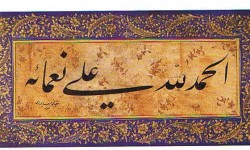 الحمد لله علی نعمائه